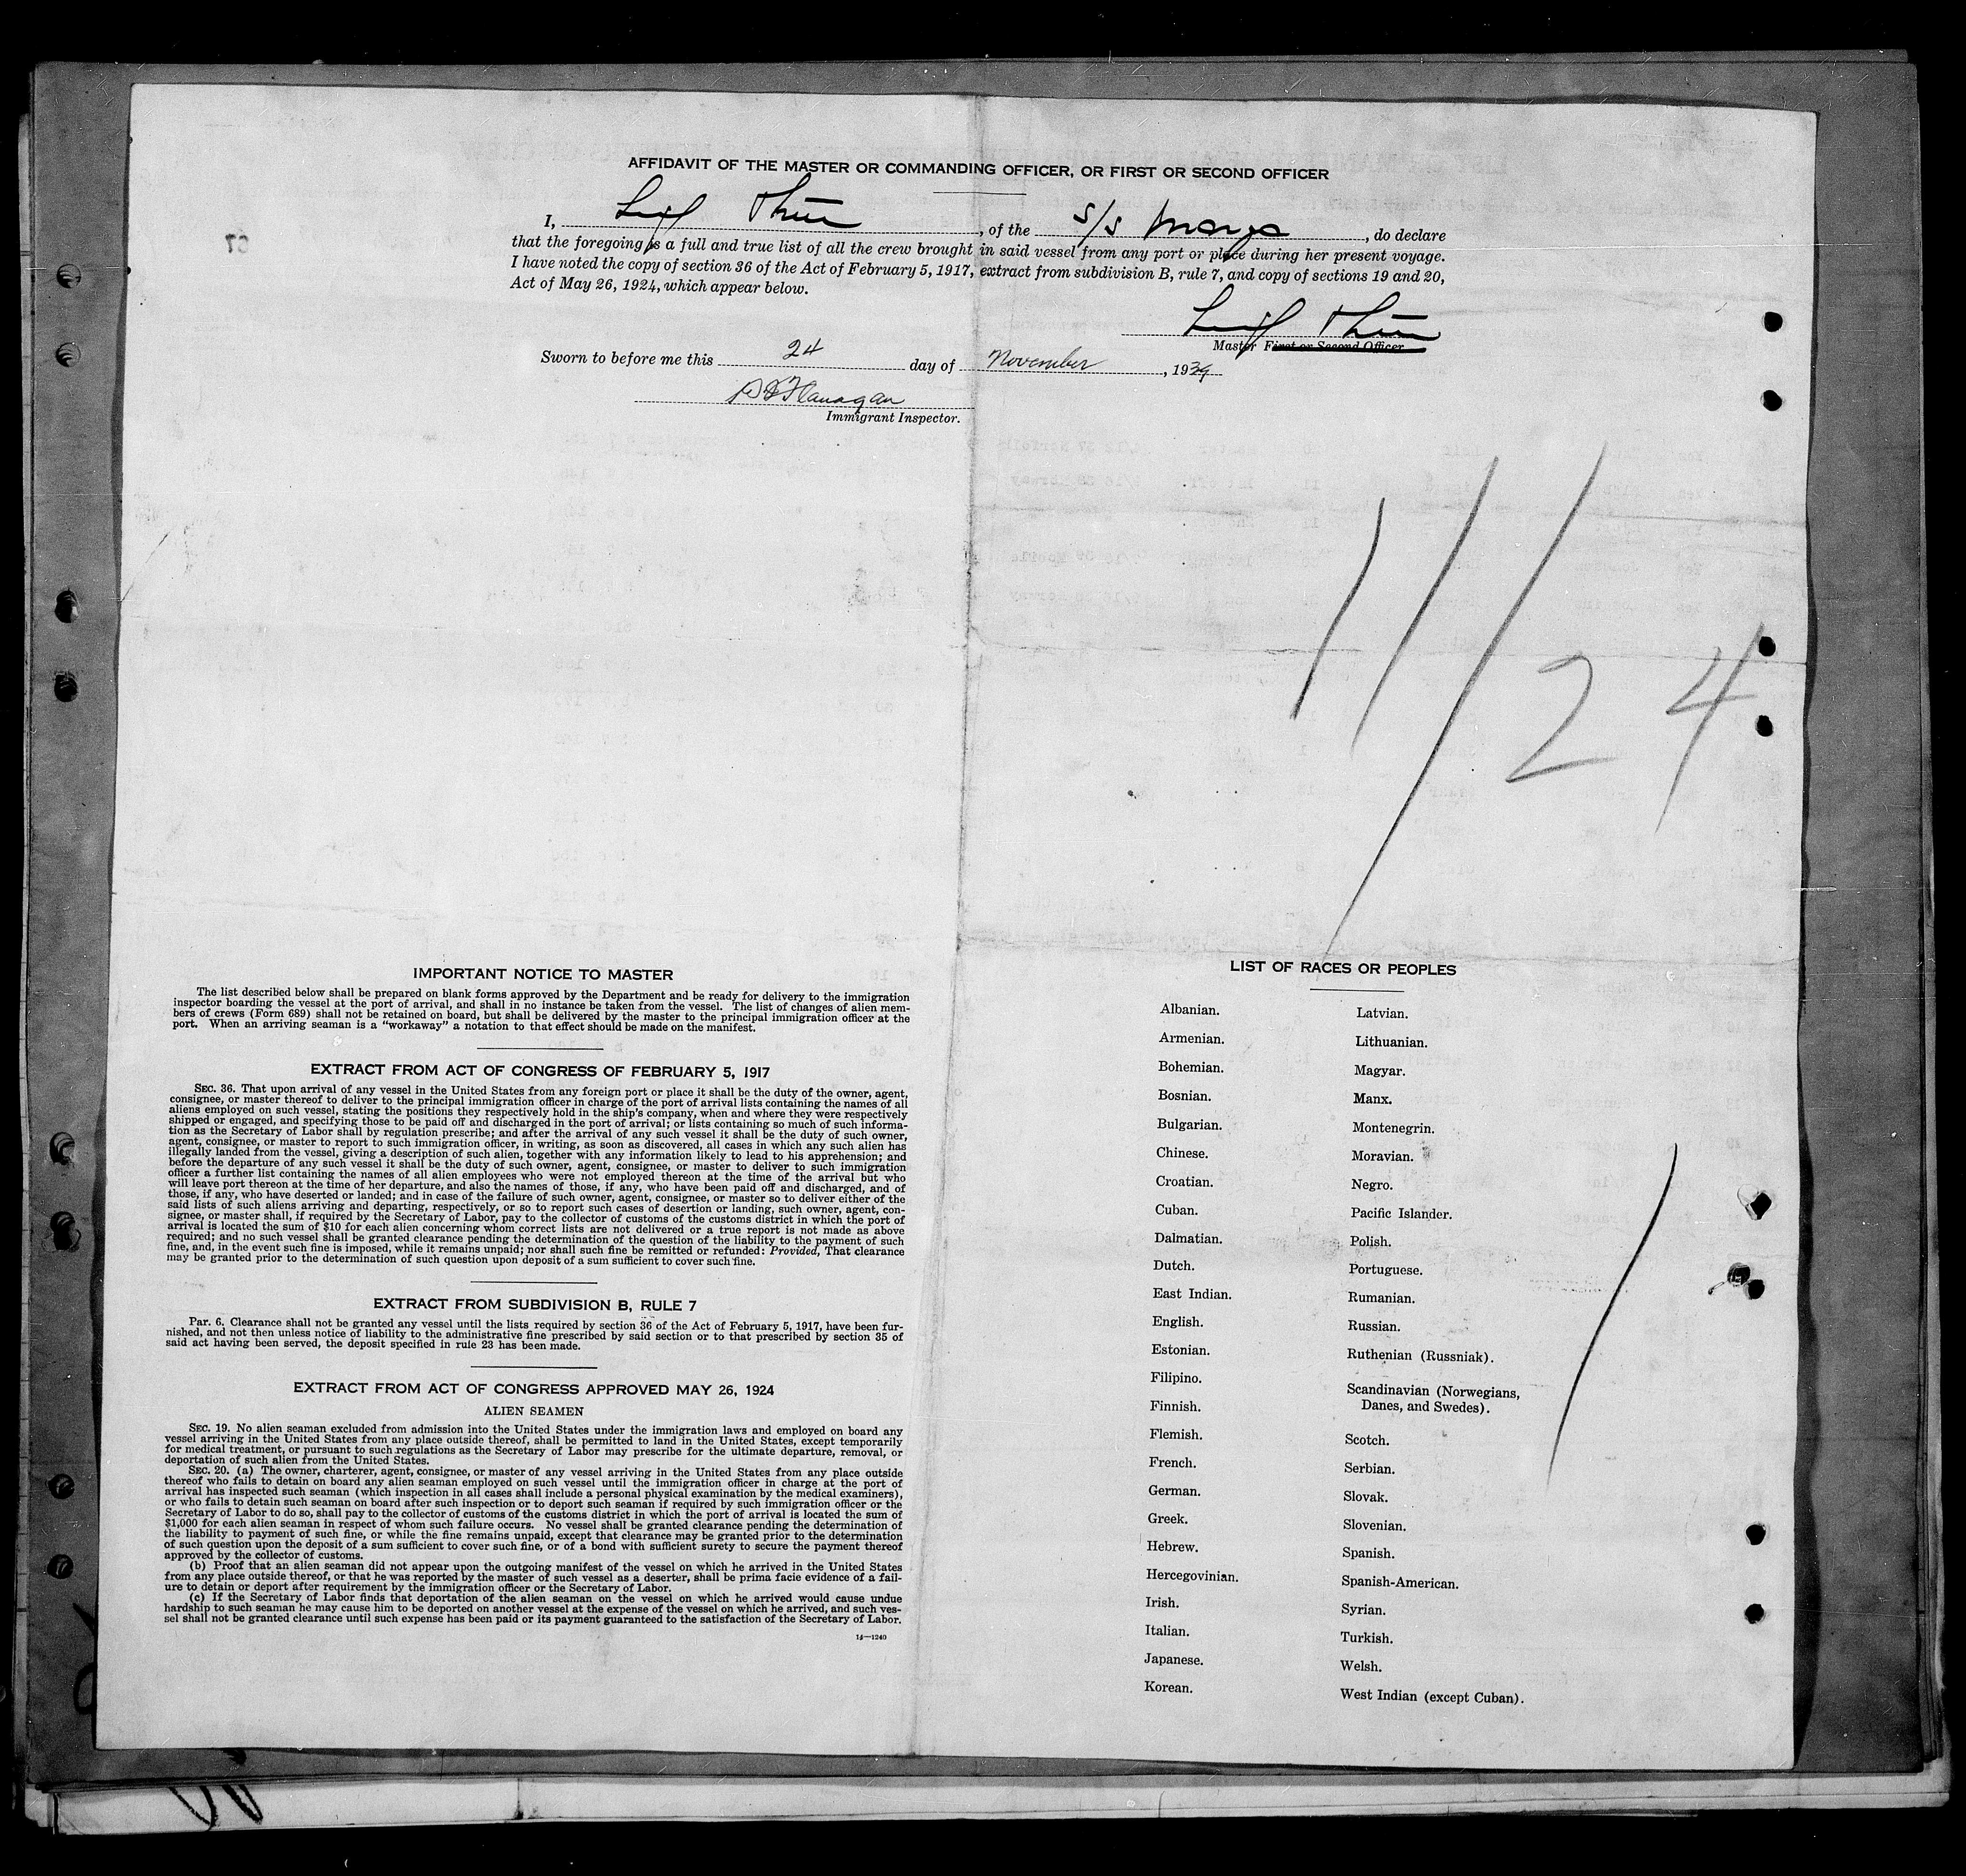 AFFIDAVIT OF THE MASTER OR COMMANDING OFFICER, OR FIRST OR SECOND OFFICER
I, Leif, of the S/S, do declare
that the foregoing is a full and true list of all the crew brought in said vessel from any port or place during her present voyage.
I have noted the copy of section 36 of the Act of February 5, 1917, extract from subdivision B, rule 7, and copy of sections 19 and 20,
Act of May 26, 1924, which appear below.
Leif
Master First or Second Officer
Sworn to before me this 24 day of November, 1939
Flanagan
Immigrant Inspector.
11/24
IMPORTANT NOTICE TO MASTER
The list described below shall be prepared on blank forms approved by the Department and be ready for delivery to the immigration
inspector boarding the vessel at the port of arrival, and shall in no instance be taken from the vessel. The list of changes of alien mem-
bers of crews (Form 689) shall not be retained on board, but shall be delivered by the master to the principal immigration officer at the
port. When an arriving seaman is a "workaway" a notation to that effect should be made on the manifest.
EXTRACT FROM ACT OF CONGRESS OF FEBRUARY 5, 1917
SEC. 36. That upon arrival of any vessel in the United States from any foreign port or place it shall be the duty of the owner, agent,
consignee, or master thereof to deliver to the principal immigration officer in charge of the port of arrival lists containing the names of all
aliens employed on such vessel, stating the positions they respectively hold in the ship's company, when and where they were respectively
shipped or engaged, and specifying those to be paid off and discharged in the port of arrival; or lists containing so much of such informa-
tion as the Secretary of Labor shall by regulation prescribe; and after the arrival of any such vessel it shall be the duty of such owner,
agent, consignee, or master to report to such immigration officer, in writing, as soon as discovered, all cases in which any such alien has
illegally landed from the vessel, giving a description of such alien, together with any information likely to lead to his apprehension; and
before the departure of any such vessel it shall be the duty of such owner, agent, consignee, or master to deliver to such immigration
officer a further list containing the names of all alien employees who were not employed thereon at the time of the arrival but who
will leave port thereon at the time of her departure, and also the names of those, if any, who have been paid off and discharged, and of
those, if any, who have deserted or landed; and in case of the failure of such owner, agent, consignee, or master so to deliver either of the
said lists of such aliens arriving and departing, respectively, or so to report such cases of desertion or landing, such owner, agent, con-
signee, or master shall, if required by the Secretary of Labor, pay to the collector of customs of the customs district in which the port of
arrival is located the sum of $10 for each alien concerning whom correct lists are not delivered or a true report is not made as above
required; and no such vessel shall be granted clearance pending the determination of the question of the liability to the payment of such
fine, and, in the event such fine is imposed, while it remains unpaid; nor shall such fine be remitted or refunded: Provided, That clearance
may be granted prior to the determination of such question upon deposit of a sum sufficient to cover such fine.
EXTRACT FROM SUBDIVISION B, RULE 7
Par. 6. Clearance shall not be granted any vessel until the lists required by section 36 of the Act of February 5, 1917, have been fur-
nished, and not then unless notice of liability to the administrative fine prescribed by said section or to that prescribed by section 35 of
said act having been served, the deposit specified in rule 23 has been made.
EXTRACT FROM ACT OF CONGRESS APPROVED MAY 26, 1924
ALIEN SEAMEN
SEC. 19. No alien seaman excluded from admission into the United States under the immigration laws and employed on board any
vessel arriving in the United States from any place outside thereof, shall be permitted to land in the United States, except temporarily
for medical treatment, or pursuant to such regulations as the Secretary of Labor may prescribe for the ultimate departure, removal, or
deportation of such alien from the United States.
SEC. 20. (a) The owner, charterer, agent, consignee, or master of any vessel arriving in the United States from any place outside
thereof who fails to detain on board any alien seaman employed on such vessel until the immigration officer in charge at the port of
arrival has inspected such seaman (which inspection in all cases shall include a personal physical examination by the medical examiners),
or who fails to detain such seaman on board after such inspection or to deport such seaman if required by such immigration officer or the
Secretary of Labor to do so, shall pay to the collector of customs of the customs district in which the port of arrival is located the sum of
$1,000 for each alien seaman in respect of whom such failure occurs. No vessel shall be granted clearance pending the determination of
the liability to payment of such fine, or while the fine remains unpaid, except that clearance may be granted prior to the determination
of such question upon the deposit of a sum sufficient to cover such fine, or of a bond with sufficient surety to secure the payment thereof
approved by the collector of customs.
(b) Proof that an alien seaman did not appear upon the outgoing manifest of the vessel on which he arrived in the United States
from any place outside thereof, or that he was reported by the master of such vessel as a deserter, shall be prima facie evidence of a fail-
ure to detain or deport after requirement by the immigration officer or the Secretary of Labor.
(c) If the Secretary of Labor finds that deportation of the alien seaman on the vessel on which he arrived would cause undue
hardship to such seaman he may cause him to be deported on another vessel at the expense of the vessel on which he arrived, and such ves-
sel shall not be granted clearance until such expense has been paid or its payment guaranteed to the satisfaction of the Secretary of Labor.
14—1240
LIST OF RACES OR PEOPLES
Albanian.
Armenian.
Bohemian.
Bosnian.
Bulgarian.
Chinese.
Croatian.
Cuban.
Dalmatian.
Dutch.
East Indian.
English.
Estonian.
Filipino.
Finnish.
Flemish.
French.
German.
Greek.
Hebrew.
Hercegovinian.
Irish.
Italian.
Japanese.
Korean.
Latvian.
Lithuanian.
Magyar.
Manx.
Montenegrin.
Moravian.
Negro.
Pacific Islander.
Polish.
Portuguese.
Rumanian.
Russian.
Ruthenian (Russniak).
Scandinavian (Norwegians,
Danes, and Swedes).
Scotch.
Serbian.
Slovak.
Slovenian.
Spanish.
Spanish-American.
Syrian.
Turkish.
Welsh.
West Indian (except Cuban).